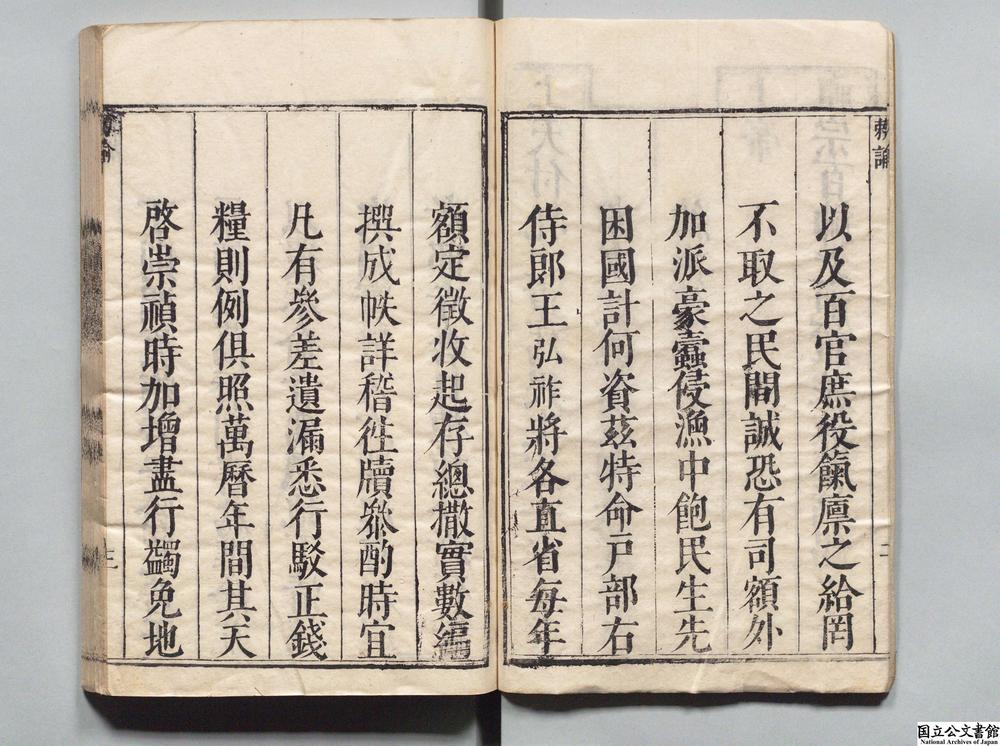 敕諭
以及百官庶役餼廩之給罔
不取之民間誠恐有司額外
加派豪蠹侵漁中飽民生先
困國計何資茲特命戸部右
侍郎王弘祚將各直省每年
二
額定徵收起存總撒實數編
撰成帙詳稽徃牘叅酌時宜
凡有參差遺漏悉行駁正錢
糧則例俱照萬曆年間其天
啓崇禎時加增盡行蠲免地
諭
三
国立公文書館
National Archives of Japan